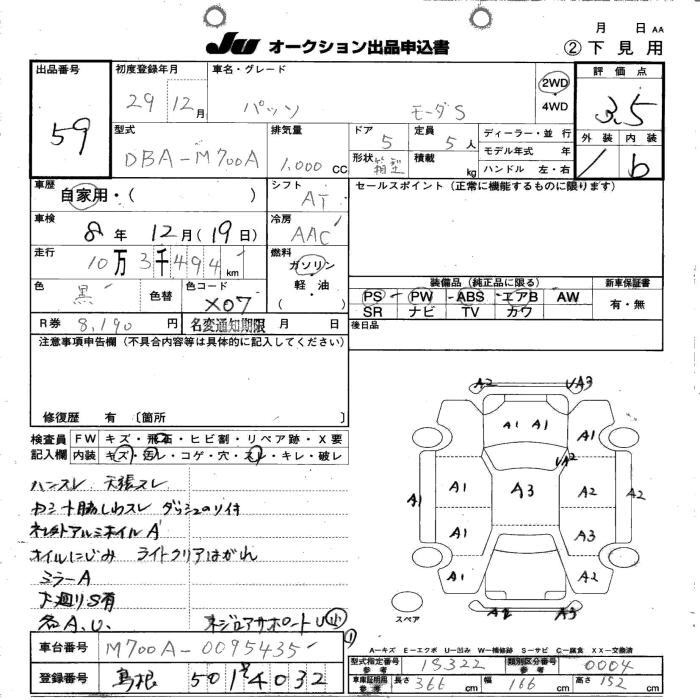 月 日 AA
JU オークション出品申込書
② 下見用
出品番号 59
初度登録年月 29年 12月
車名・グレード パッソ モーダS
2WD
4WD
評価点 3.5
外装 内装 b
型式 DBA-M700A
排気量 1,000 CC
ドア 5
定員 5人
形状 箱型
積載 kg
ディーラー・並行
モデル年式 年
ハンドル 左・右
車歴 自家用・( )
シフト AT
セールスポイント(正常に機能するものに限ります)
車検 8年 12月(19日)
冷房 AAC
走行 10万3千494km
燃料 ガソリン
軽・油
( )
色 黒
色替
色コード X07
装備品(純正品に限る)
新車保証書
PS PW ABS エアB AW
SR ナビ TV カワ
有・無
R券 8,190円
名変通知期限 月 日
後日品
注意事項申告欄(不具合内容等は具体的に記入してください)
修復歴 有 〔箇所 〕
検査員 FW キズ・飛石・ヒビ割・リペア跡・X要
記入欄 内装 キズ・汚レ・コゲ・穴・スレ・キレ・破レ
ハンスレ 天張スレ
ダッシュのり付
社外アルミホイルA
オイルにじみ ライトクリアはがれ
ミラーA
下廻りS有
各A.U.
A2 UA3
A1 A1 A1
UA2
A1 A1 A3 A2 A2
A1 A3
A1 A2
A2 A3
スペア
車台番号 M700A-0095435
登録番号 島根 501 4032
A-キズ E-エクボ U-凹み W-補修跡 S-サビ C-腐食 XX-交換済
型式指定番号 参考 18322
類別区分番号 参考 0004
車庫証明用 参考 長さ 366 cm 幅 166 cm 高さ 152 cm